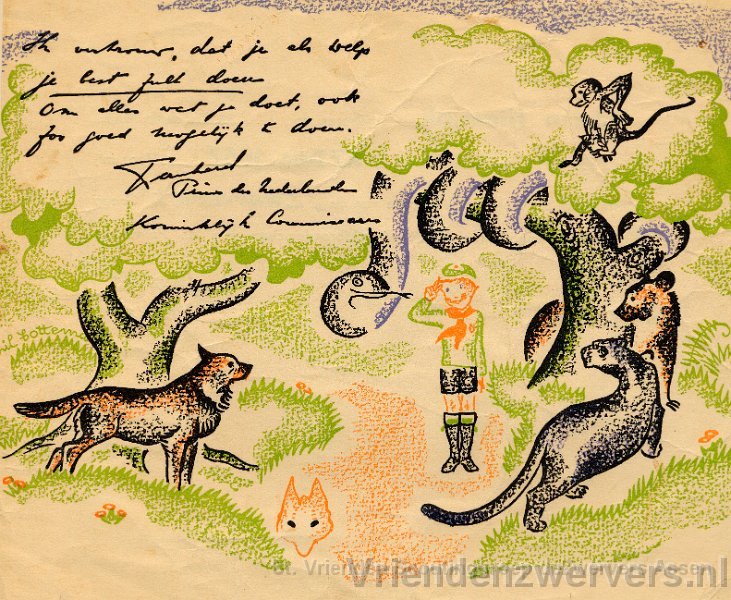 Ik vertrouw, dat je als welp
je best zult doen
Om alles wat je doet, ook
zoo goed mogelijk te doen.
Prins der Nederlanden
Koninklijk Commissaris
St. Vrienden
Assen
Vriendenzwervers.nl